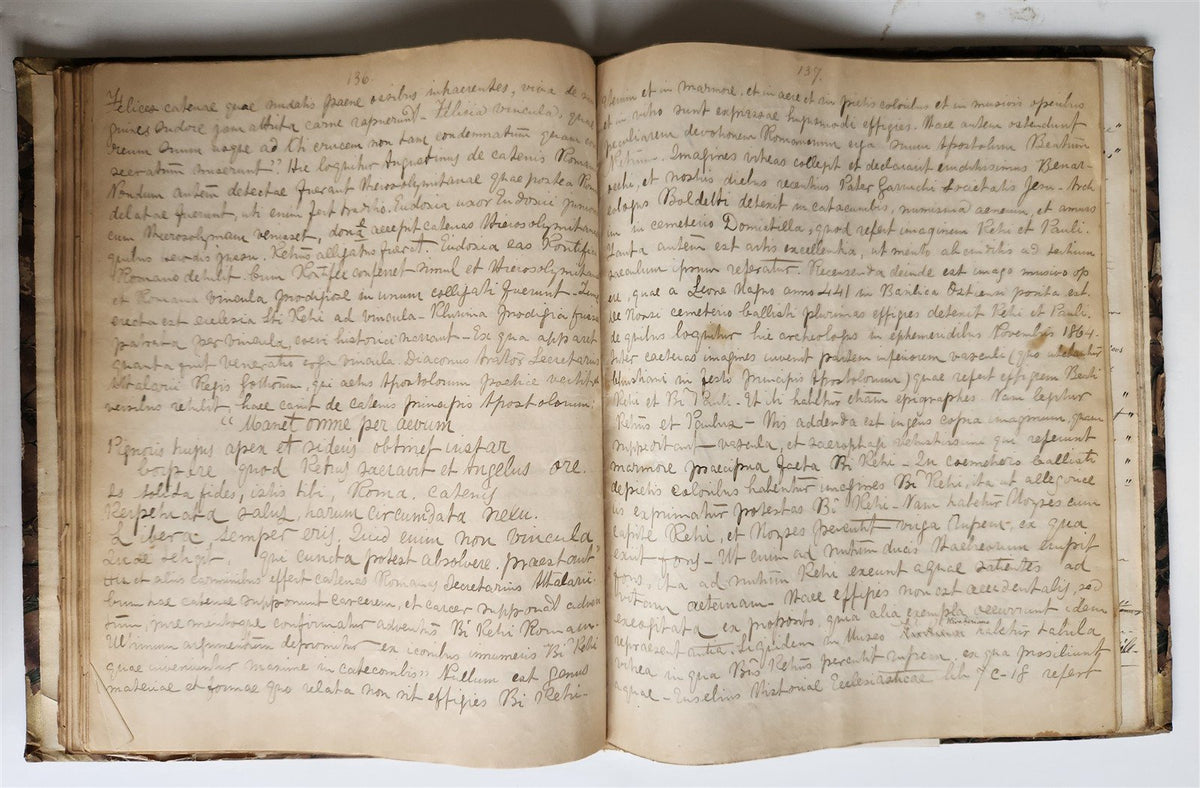 136
Felices catenae quae nudatis paene ossibus inhaerentes, viva de
sudore jam attrita carne rapuerunt. Felicia vincula, quae
reum suum usque ad Xti crucem non tam condemnatum quam con
secratum miserunt" Hic loquitur Augustinus de catenis Roma
Nondum autem detectae fuerant Hierosolymitanae quae postea Ro
delatae fuerunt, uti enim fert traditio. Eudoxia uxor Eudoxii junior
cum Hierosolymam venisset, dono accepit catenas Hierosolymitana
quibus Petrus alligatus fuerit. Eudoxia eas Pontifici
Romano dedit. Cum conferret simul et Hierosolymita
et Romana vincula prodigiose in unum colligati fuerunt. Tunc
erecta est ecclesia Sti Petri ad vincula. Plurima prodigia fuere
patrata per vincula, coevi historici narrant. Ex qua apparet
quanta fuit veneratio erga vincula Diaconus Arator Secretarius
Athalarici Regis Gothorum, qui actus Apostolorum poetice vertit
versibus retulit, haec canit de catenis principis Apostolorum:
"Manet omne per aevum
Pignoris hujus apex et sideris obtinet instar
Corpore quod Petrus sacravit et Angelus ore.
Is solida fides, istis tibi, Roma, catenis
Perpetuata salus, harum circumdata nexu.
Libera semper eris. Quid enim non vincula
Quae tetigit, qui cuncta potest absolvere. praestant"
Hic et aliis carminibus effert catenas Romanas Secretarius Athalarici.
Cum hae catenae supponunt carcerem, et carcer supponat adven
tum, prae mentoque confirmatur adventus Bi Petri Romam.
Ultimum argumentum depromitur ex iconibus innumeris Bi Petri
quae inveniuntur maxime in catecombis. Nullum est genus
materiae et formae quo relata non sit effigies Bi Petri.
137.
Etenim et in marmore, et in aere et in pictis coloribus et in musivis operibus
et in vitro sunt expressae hujusmodi effigies. Haec autem ostendunt
peculiarem devotionem Romanorum erga suum Apostolum Beatum
Petrum. Imagines vitreas collegit et declaravit eruditissimus Benar
et nostris diebus recentius Pater Garruchi Societatis Jesu. Arch
eologus Boldetti detexit in catacumbis, numisma aeneum, et
in cemeterio Domitillae, quod refert imaginem Petri et Pauli.
Tanta autem est artis excellentia, ut merito ab eruditis ad tertium
saeculum ipsum referatur. Recensenda deinde est imago musivo op
ere, quae a Leone Magno anno 441 in Basilica Ostiensi posita est.
De Rossi cemeterio Callisti plurimas effigies detexit Petri et Pauli.
de quibus loquitur hic archeologus in ephemeridibus Novembris 1864.
Inter caeteras imagines invenit partem inferiorem vasculi (quo utebantur
Christiani in festo Principis Apostolorum) quae refert effigiem Beati
Petri et Bi Pauli. Et ibi habetur etiam epigraphes. Nam legitur
Petrus et Paulus. His addenda est ingens copia imaginum, quam
supportant vascula, et sarcophagi vetustissimi qui referunt
marmore praecipua facta Bi Petri. In coemeterio Callisti
depictis coloribus habentur imagines Bi Petri, ita ut allegorice
exprimatur potestas Bi Petri. Nam habetur Moyses cum
capite Petri, et Moyses percutit virga rupem, ex qua
exiit fons. Ut enim ad nutum ducis Haebreorum erupit
fons, ita ad nutum Petri exeunt aquae salientes ad
vitam aeternam. Haec effigies non est accidentalis, sed
excogitata ex proposito, quia alia exempla occurrunt idem
repraesentantia. Siquidem in Museo Vaticano habetur tabula
vitrea in qua Bus Petrus percutit rupem, ex qua prosiliunt
aquae. Eusebius Historiae Ecclesiasticae lib 7 c-18 refert